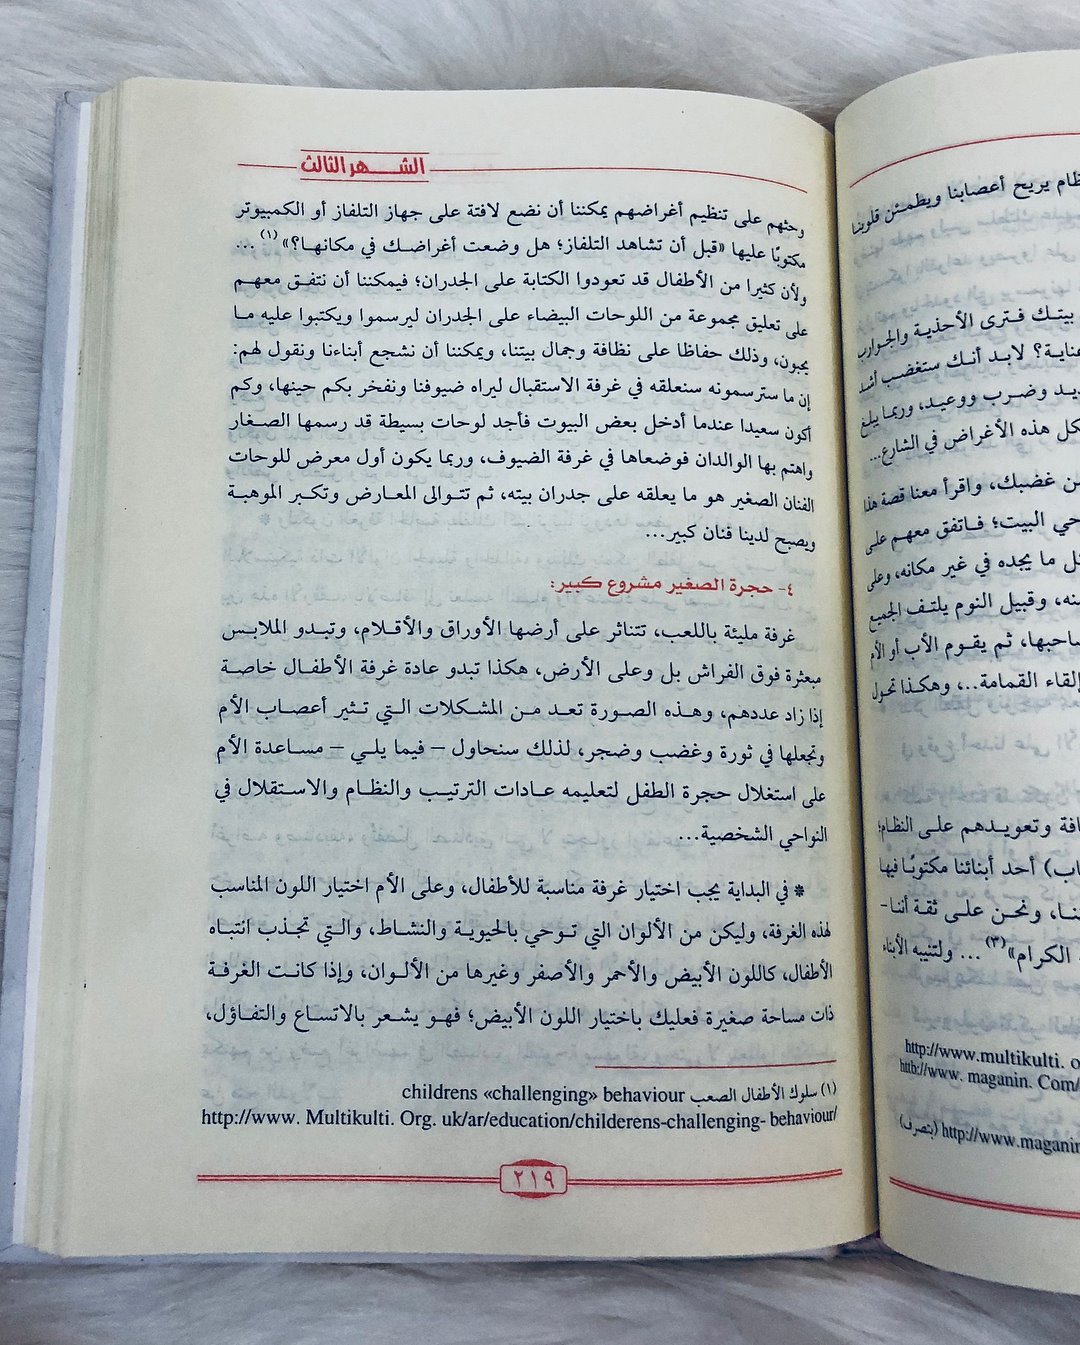 الشهر الثالث
وحثهم على تنظيم أغراضهم يمكننا أن نضع لافتة على جهاز التلفاز أو الكمبيوتر
مكتوبًا عليها «قبل أن تشاهد التلفاز؛ هل وضعت أغراضك في مكانها؟» (١) ...
ولأن كثيرا من الأطفال قد تعودوا الكتابة على الجدران؛ فيمكننا أن نتفق معهم
على تعليق مجموعة من اللوحات البيضاء على الجدران ليرسموا ويكتبوا عليه ما
يحبون، وذلك حفاظا على نظافة وجمال بيتنا، ويمكننا أن نشجع أبناءنا ونقول لهم:
إن ما سترسمونه سنعلقه في غرفة الاستقبال ليراه ضيوفنا ونفخر بكم حينها، وكم
أكون سعيدا عندما أدخل بعض البيوت فأجد لوحات بسيطة قد رسمها الصغار
واهتم بها الوالدان فوضعاها في غرفة الضيوف، وربما يكون أول معرض للوحات
الفنان الصغير هو ما يعلقه على جدران بيته، ثم تتوالى المعارض وتكبر الموهبة
ويصبح لدينا فنان كبير...
٤- حجرة الصغير مشروع كبير:
غرفة مليئة باللعب، تتناثر على أرضها الأوراق والأقلام، وتبدو الملابس
مبعثرة فوق الفراش بل وعلى الأرض، هكذا تبدو عادة غرفة الأطفال خاصة
إذا زاد عددهم، وهذه الصورة تعد من المشكلات التي تثير أعصاب الأم
وتجعلها في ثورة وغضب وضجر، لذلك سنحاول – فيما يلي – مساعدة الأم
على استغلال حجرة الطفل لتعليمه عادات الترتيب والنظام والاستقلال في
النواحي الشخصية...
* في البداية يجب اختيار غرفة مناسبة للأطفال، وعلى الأم اختيار اللون المناسب
لهذه الغرفة، وليكن من الألوان التي توحي بالحيوية والنشاط، والتي تجذب انتباه
الأطفال، كاللون الأبيض والأحمر والأصفر وغيرها من الألوان، وإذا كانت الغرفة
ذات مساحة صغيرة فعليك باختيار اللون الأبيض؛ فهو يشعر بالاتساع والتفاؤل،
(١) سلوك الأطفال الصعب childrens «challenging» behaviour
http://www. Multikulti. Org. uk/ar/education/childerens-challenging- behaviour/
٢١٩
يريح أعصابنا ويطمئن قلوبنا
بيتك فترى الأحذية والجوارب
عناية؟ لابد أنك ستغضب أشد
وضرب ووعيد، وربما يبلغ
كل هذه الأغراض في الشارع...
غضبك، واقرأ معنا قصة هذا
البيت؛ فاتفق معهم على
ما يجده في غير مكانه، وعلى
وقبيل النوم يلتف الجميع
صاحبها، ثم يقوم الأب أو الأم
إلقاء القمامة..، وهكذا تحول
وتعويدهم على النظام؛
أحد أبنائنا مكتوبًا فيها
ونحن على ثقة أننا-
الكرام» (٣) ... ولتنبيه الأبناء
http://www.multikulti. o
http://www. maganin. Com/
(بتصرف) http://www.maganin